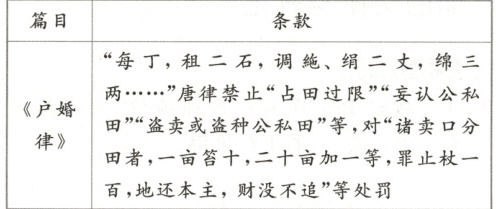 篇目 条款
《户婚律》
“每丁，租二石，调絁、绢二丈，绵三
两……”唐律禁止“占田过限”“妄认公私
田”“盗卖或盗种公私田”等，对“诸卖口分
田者，一亩笞十，二十亩加一等，罪止杖一
百，地还本主，财没不追”等处罚